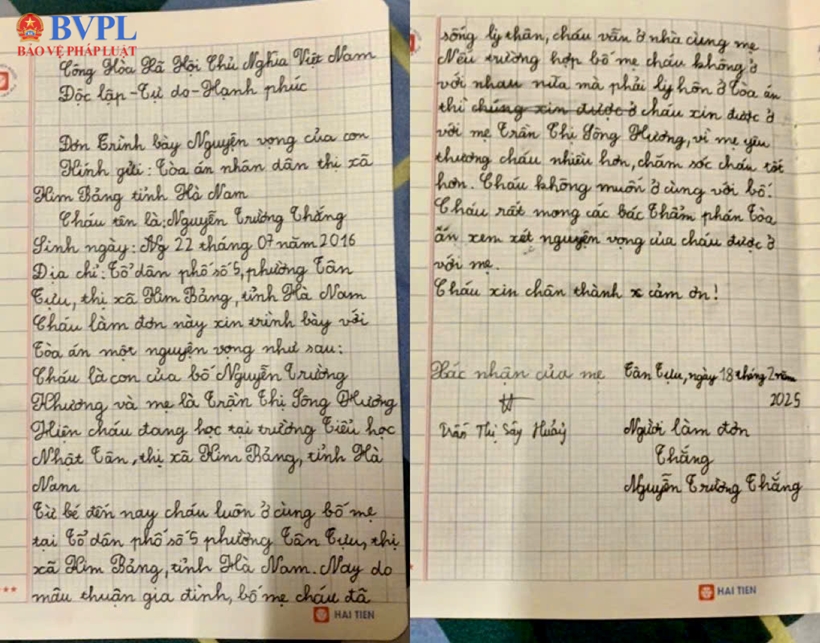 BVPL
BẢO VỆ PHÁP LUẬT
Cộng Hòa Xã Hội Chủ Nghĩa Việt Nam
Độc lập-Tự do-Hạnh phúc
Đơn Trình bày Nguyện vọng của con
Kính gửi: Tòa án nhân dân thị xã
Kim Bảng tỉnh Hà Nam
Cháu tên là: Nguyễn Trương Thắng
Sinh ngày: 22 tháng 07 năm 2016
Địa chỉ: Tổ dân phố số 5, phường Tân
Tựu, thị xã Kim Bảng, tỉnh Hà Nam
Cháu làm đơn này xin trình bày với
Tòa án một nguyện vọng như sau:
Cháu là con của bố Nguyễn Trương
Khương và mẹ là Trần Thị Sông Hương
Hiện cháu đang học tại trường Tiểu học
Nhật Tân, thị xã Kim Bảng, tỉnh Hà
Nam
Từ bé đến nay cháu luôn ở cùng bố mẹ
tại Tổ dân phố số 5 phường Tân Tựu, thị
xã Kim Bảng, tỉnh Hà Nam. Nay do
mâu thuẫn gia đình, bố mẹ cháu đã
HAI TIEN
sống ly thân, cháu vẫn ở nhà cùng mẹ
Nếu trường hợp bố mẹ cháu không ở
với nhau nữa mà phải ly hôn ở Tòa án
thì chúng xin được ở cháu xin được ở
với mẹ Trần Thị Sông Hương, vì mẹ yêu
thương cháu nhiều hơn, chăm sóc cháu tốt
hơn. Cháu không muốn ở cùng với bố.
Cháu rất mong các bác Thẩm phán Tòa
án xem xét nguyện vọng của cháu được ở
với mẹ.
Cháu xin chân thành x cảm ơn!
Xác nhận của mẹ
Tân Tựu, ngày 18 tháng 2 năm
2025
Trần Thị
Người làm đơn
Thắng
Nguyễn Trương Thắng
HAI TIEN